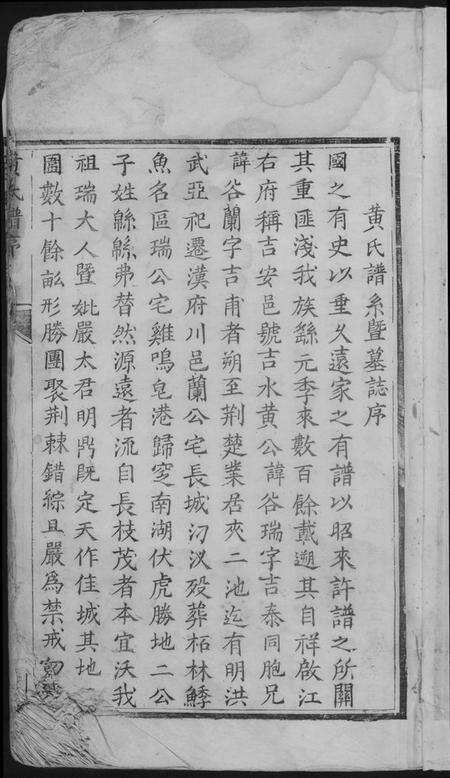 黃氏譜系暨墓誌序
國之有史以垂久遠家之有譜以昭來許譜之所關
其重匪淺我族繇元季來數百餘載遡其自祥啟江
右府稱吉安邑號吉水黃公諱谷瑞字吉泰同胞兄
諱谷蘭字吉甫者朔至荆楚業居夾二池迄有明洪
武亞祀遷漢府川邑蘭公宅長城汈汊殁葬栢林鯚
魚名區瑞公宅雞鳴皂港歸窆南湖伏虎勝地二公
子姓緜緜弗替然源遠者流自長枝茂者本宜沃我
祖瑞大人暨妣嚴太君明鼎既定天作佳城其地
圖數十餘畆形勝團聚荆棘錯綜且嚴爲禁戒
黃氏譜序